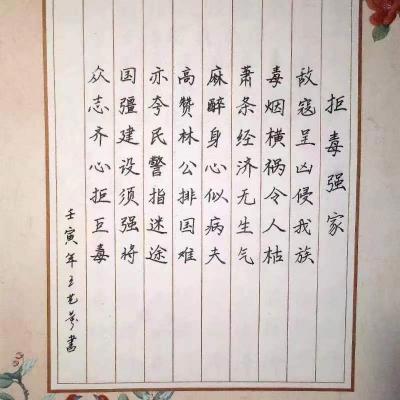 拒毒强家
敌寇呈凶侵我族
毒烟横祸令人枯
萧条经济无生气
麻醉身心似病夫
高赞林公排国难
亦夸民警指迷途
国疆建设须强将
众志齐心拒巨毒
壬寅年王艺芬书